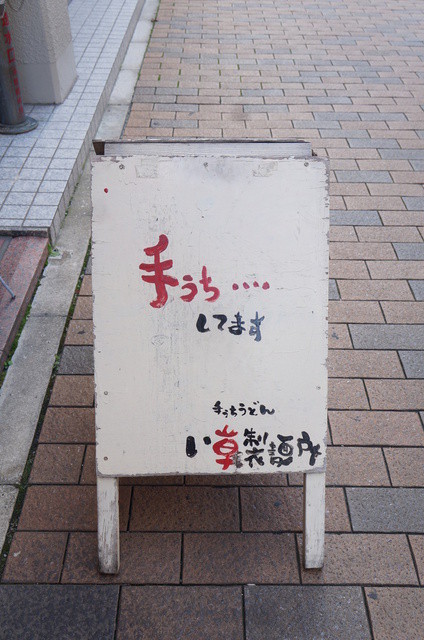 手うち‥‥
してます
手うちうどん
い草製麺所